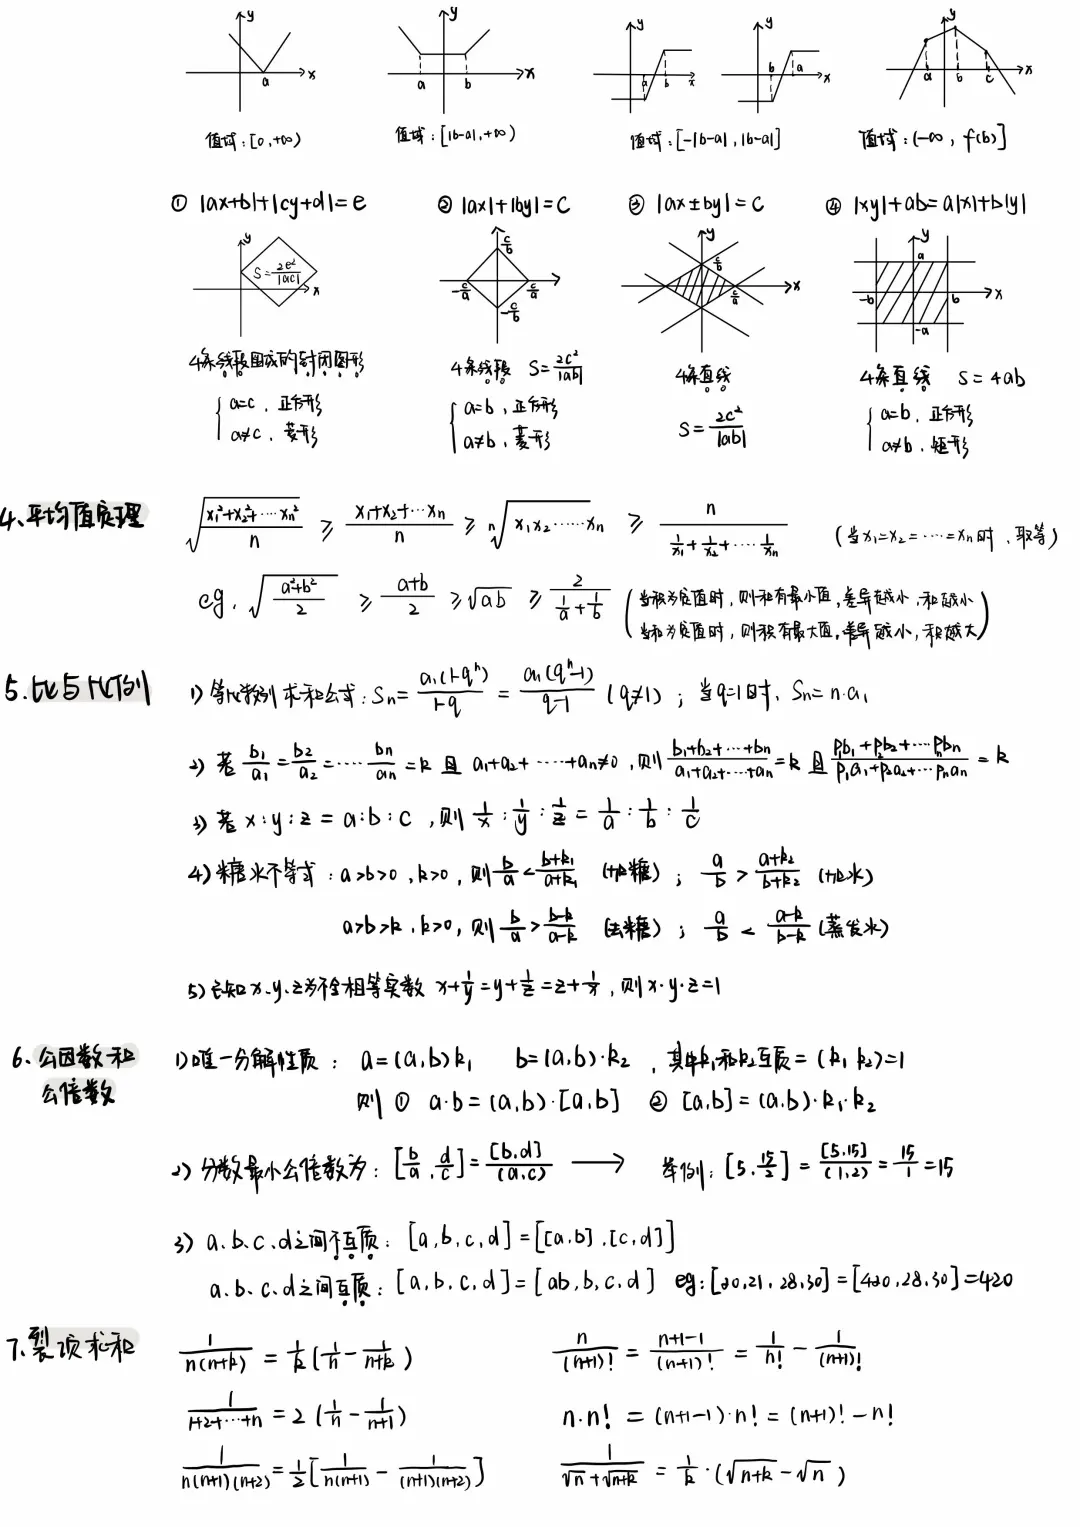 值域:[0,+∞) 值域:[|b-a|,+∞) 值域:[-|b-a|,|b-a|] 值域:(-∞, f(b)]
① |ax+b|+|cy+d|=e ② |ax|+|by|=C ③ |ax±by|=C ④ |xy|+ab=a|x|+b|y|
S=2e²/|ac|
4条线段围成的封闭图形 4条线段 S=2c²/|ab| 4条直线 4条直线 S=4ab
{a=c,正方形 {a=b,正方形 S=2c²/|ab| {a=b,正方形
a≠c,菱形 a≠b,菱形 a≠b,矩形
4、平均值定理 √((x₁²+x₂²+…xₙ²)/n) ≥ (x₁+x₂+…xₙ)/n ≥ ⁿ√(x₁x₂……xₙ) ≥ n/(1/x₁+1/x₂+…1/xₙ) (当x₁=x₂=…=xₙ时,取等)
eg. √((a²+b²)/2) ≥ (a+b)/2 ≥ √ab ≥ 2/(1/a+1/b) (当积为定值时,则和有最小值,差异越小,和越小
当和为定值时,则积有最大值,差异越小,积越大)
5.比与比例 1) 等比数列求和公式:Sn=a₁(1-qⁿ)/(1-q) = a₁(qⁿ-1)/(q-1) (q≠1) ; 当q=1时, Sn=n·a₁
2) 若 b₁/a₁=b₂/a₂=……bn/an=k 且 a₁+a₂+……+an≠0,则 (b₁+b₂+…+bn)/(a₁+a₂+…+an)=k 且 (p₁b₁+p₂b₂+…pnbn)/(p₁a₁+p₂a₂+…pnan)=k
3) 若 x:y:z=a:b:c,则 1/x:1/y:1/z=1/a:1/b:1/c
4) 糖水不等式:a>b>0,k>0,则 b/a<(b+k₁)/(a+k₁) (加糖); a/b>(a+k₂)/(b+k₂) (加水)
a>b>k,k>0,则 b/a>(b-k)/(a-k) (去糖); a/b<(a-k)/(b-k) (蒸发水)
5) 已知x、y、z为不全相等实数 x+1/y=y+1/z=z+1/x,则x·y·z=1
6、公因数和 1)唯一分解性质: a=(a,b)k₁ b=(a,b)·k₂ ,其中k₁和k₂互质=(k₁,k₂)=1
公倍数 则 ① a·b=(a,b)·[a,b] ② [a,b]=(a,b)·k₁·k₂
2) 分数最小公倍数为: [b/a,d/c]=[b,d]/(a,c) ⟶ 举例:[5,15/2]=[5,15]/(1,2)=15/1=15
3) a、b、c、d之间不互质: [a,b,c,d]=[[a,b],[c,d]]
a、b、c、d之间互质: [a,b,c,d]=[ab,b,c,d] eg:[20,21,28,30]=[420,28,30]=420
7、裂项求和 1/(n(n+k))=1/k(1/n-1/(n+k)) n/(n+1)!=(n+1-1)/(n+1)!=1/n!-1/(n+1)!
1/(1+2+…+n)=2(1/n-1/(n+1)) n·n!=(n+1-1)·n!=(n+1)!-n!
1/(n(n+1)(n+2))=1/2[1/(n(n+1))-1/((n+1)(n+2))] 1/(√n+√(n+k))=1/k·(√(n+k)-√n)